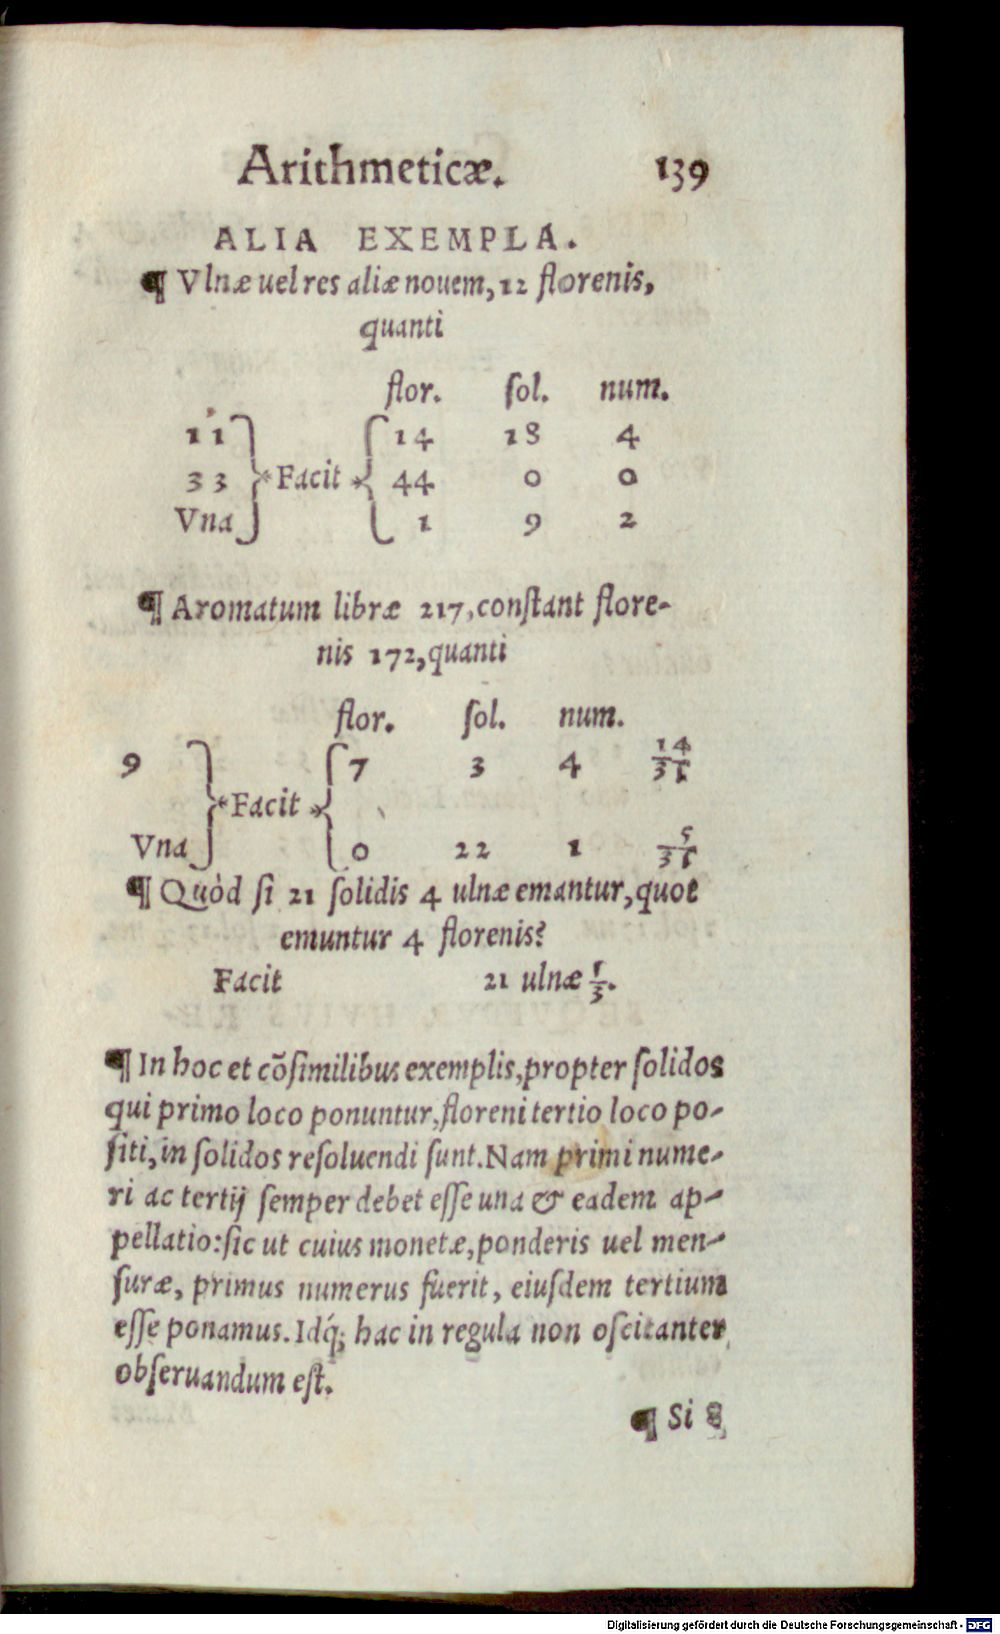 Arithmeticæ. 139
ALIA EXEMPLA.
¶ Vlnæ uel res aliæ nouem, 12 florenis,
quanti
flor. ſol. num.
11 14 18 4
33 Facit 44 0 0
Vna 1 9 2
¶ Aromatum libræ 217, conſtant flore-
nis 172, quanti
flor. ſol. num.
9 7 3 4 14/31
Facit
Vna 0 22 1 5/31
¶ Quòd ſi 21 ſolidis 4 ulnæ emantur, quot
emuntur 4 florenis?
Facit 21 ulnæ 1/3.
¶ In hoc et cõſimilibus exemplis, propter ſolidos
qui primo loco ponuntur, floreni tertio loco po-
ſiti, in ſolidos reſoluendi ſunt. Nam primi nume-
ri ac tertij ſemper debet eſſe una & eadem ap-
pellatio: ſic ut cuius monetæ, ponderis uel men-
ſuræ, primus numerus fuerit, eiuſdem tertium
eſſe ponamus. Idq́; hac in regula non oſcitanter
obſeruandum eſt.
¶ Si 8
Digitalisierung gefördert durch die Deutsche Forschungsgemeinschaft - DFG